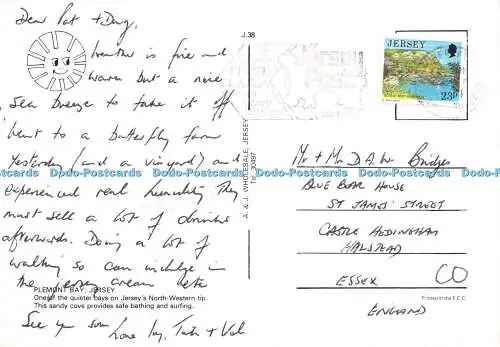 Dear Pat + Doug,
Weather is fine and
warm but a nice
sea breeze to take it off
Went to a butterfly farm
yesterday (and a vineyard) and
experienced real humidity They
must sell a lot of drinks
afterwards. Doing a lot of
walking so can indulge in
the jersey cream etc
PLEMONT BAY, JERSEY
One of the quieter bays on Jersey's North-Western tip.
This sandy cove provides safe bathing and surfing.
See you soon
Love Joy, + Val
J.38
A. & J. WHOLESALE, JERSEY
JERSEY
23p
Mr + Mrs D A W Bridges
BLUE BOAR HOUSE
ST JAMES' STREET
CASTLE HEDINGHAM
HALSTEAD
ESSEX CO
ENGLAND
Printed in the E.E.C.
Dodo-Postcards Dodo-Postcards Dodo-Postcards Dodo-Postcards Dodo-Postcards